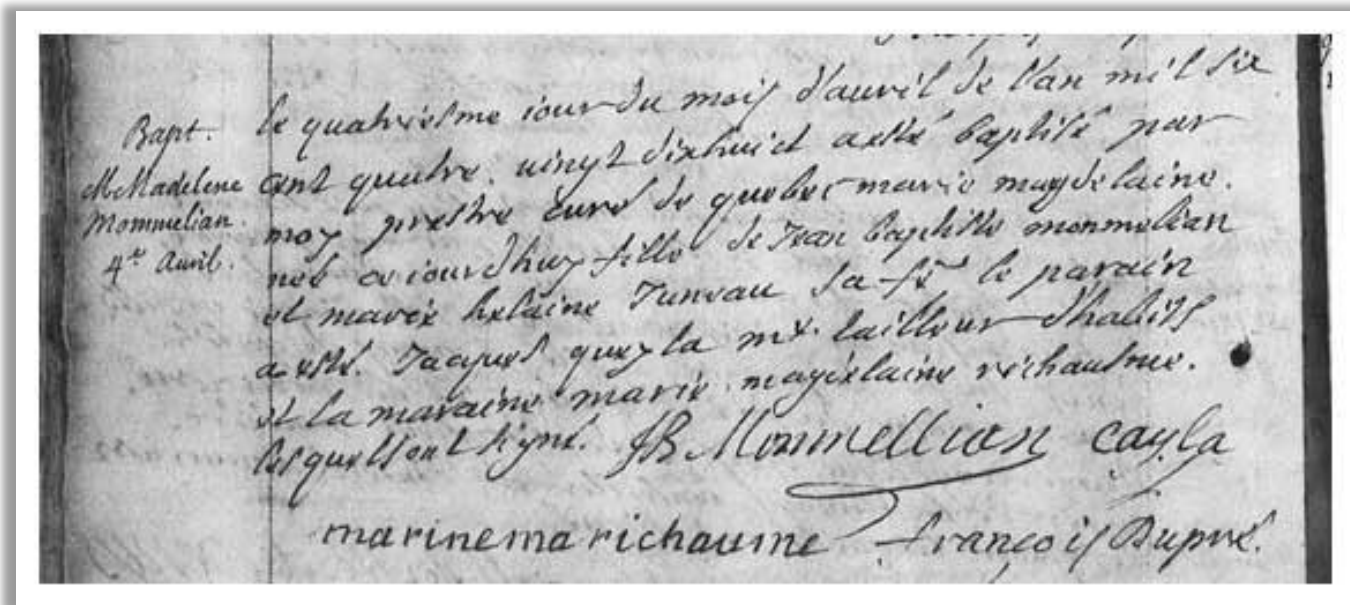 Bapt.
M Madelene
Mommelian.
4e Auril.
le quatriesme iour du mois d'auril de l'an mil six
cent quatre uingt dixhuict a esté baptisé par
moy prestre curé de quebec marie magdelaine.
neé ce iourdhuy fille de Jean baptiste monmelian
et marie helaine Juneau sa fe le parain
a esté. Jacques la me. tailleur d'habits
et la maraine marie magdelaine richaulme.
lesquels ont signé. JB Monmellian cayla
marinema richaume françois Dupré.